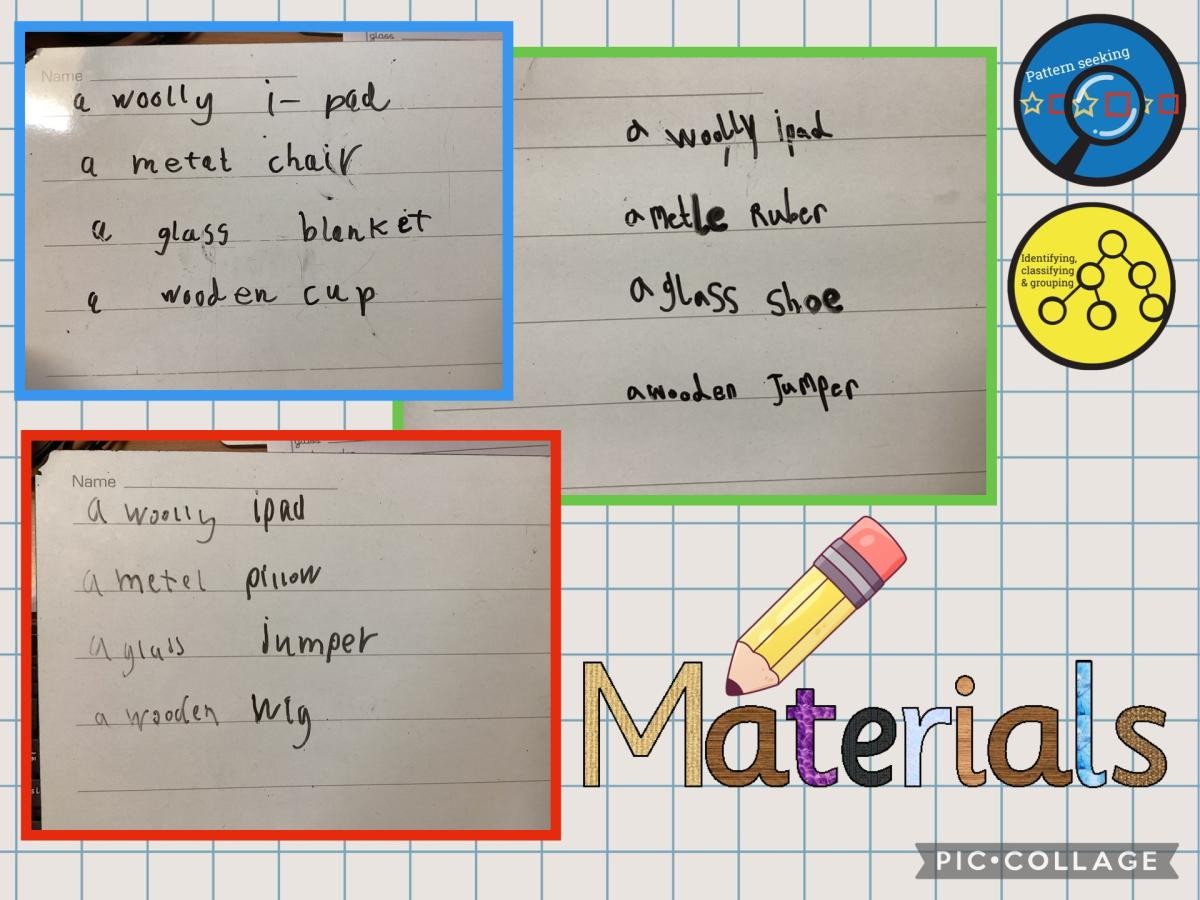 Name
a woolly i- pad
a metat chair
a glass blenket
a wooden cup
glass
a woolly ipad
a metle Ruber
a glass shoe
a wooden Jumper
Name
a woolly ipad
a metel pillow
a glass jumper
a wooden wig
Pattern seeking
Identifying,
classifying
& grouping
Materials
PIC•COLLAGE